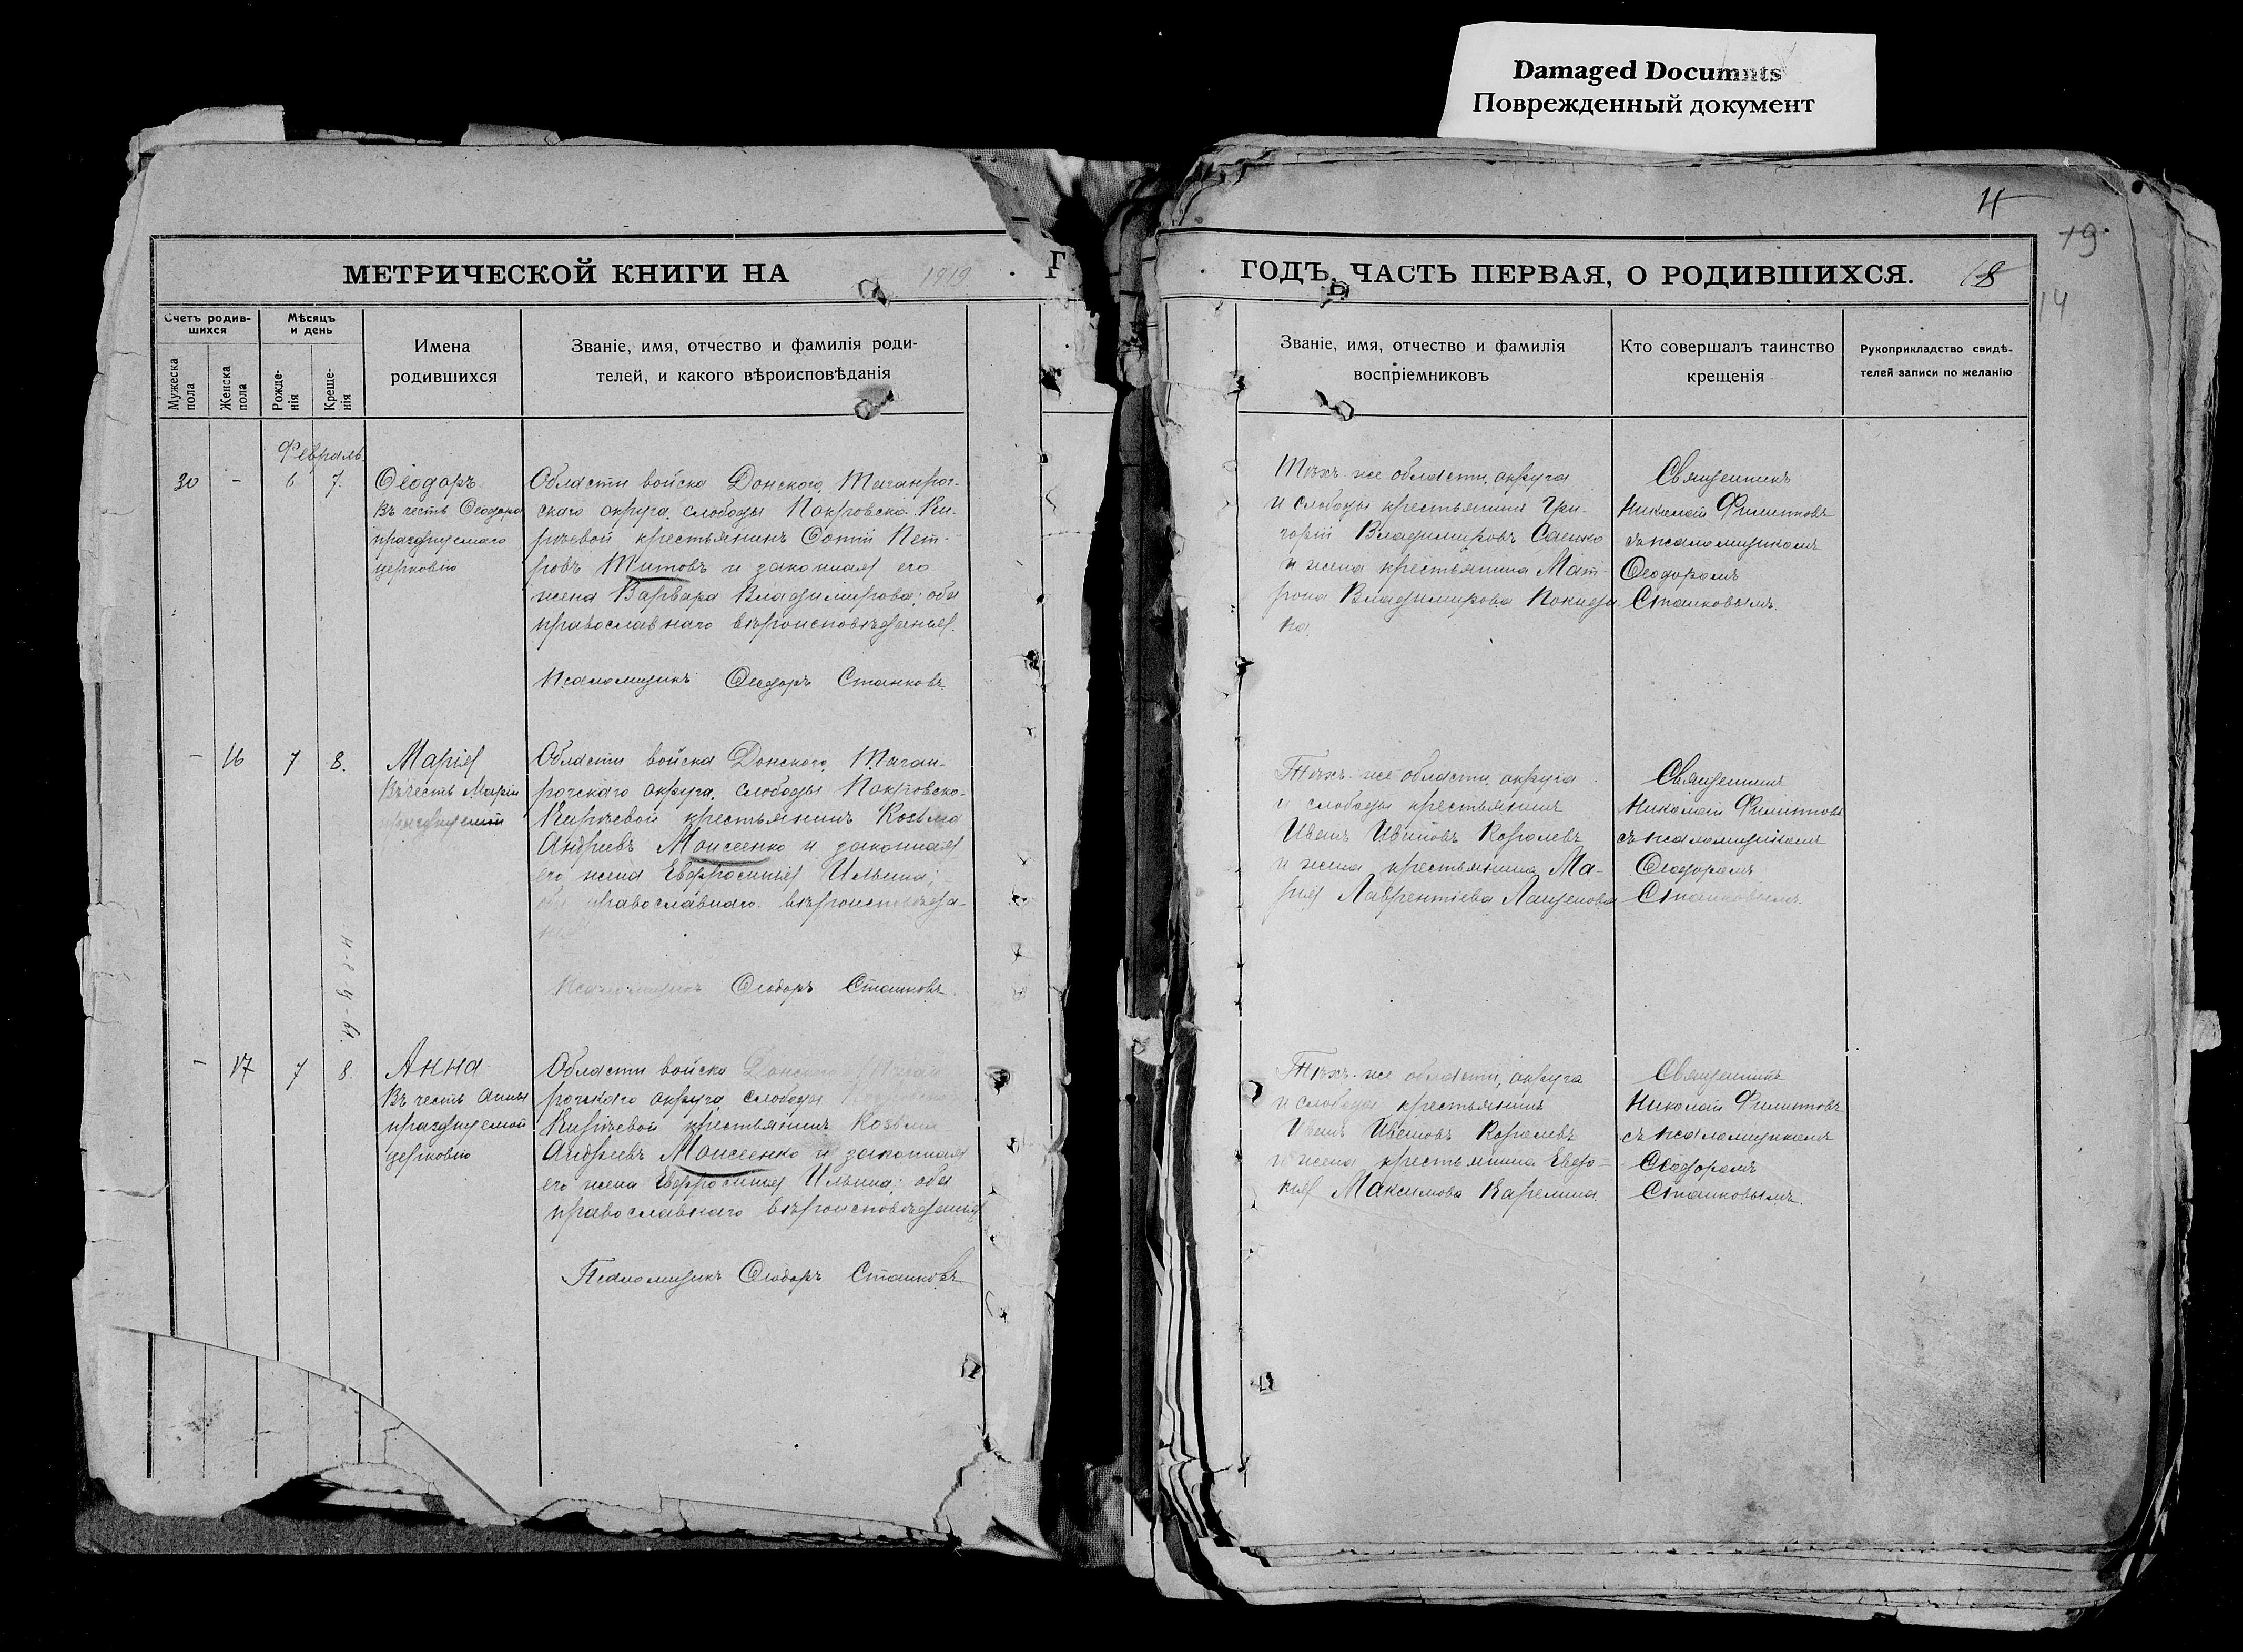 Damaged Documnts
Поврежденный документ
4
19
МЕТРИЧЕСКОЙ КНИГИ НА 1919 Г
ГОДЪ, ЧАСТЬ ПЕРВАЯ, О РОДИВШИХСЯ.
18
14
Счетъ родив-
шихся
Мѣсяцъ
и день
Мужеска
пола
Женска
пола
Рожде-
нія
Креще-
нія
Имена
родившихся
Званіе, имя, отчество и фамилія роди-
телей, и какого вѣроисповѣданія
Званіе, имя, отчество и фамилія
воспріемниковъ
Кто совершалъ таинство
крещенія
Рукоприкладство свидѣ-
телей записи по желанію
Февраль
30 - 6 7.
Ѳеодоръ
Въ честь Ѳеодора
празднуемаго
церковію
Области войска Донского, Таганрог-
скаго округа, слободы Покровско-Ки-
рѣевой крестьянинъ Фотій Пет-
ровъ Титовъ и законная его
жена Варвара Владимирова; оба
православнаго вѣроисповѣданія.
Псаломщикъ Ѳеодоръ Станковъ
Тѣхъ-же области, округа
и слободы крестьянинъ Гри-
горій Владимировъ Саенко
и жена крестьянина Мат-
рона Владимирова
Священникъ
Николай Филипповъ
съ псаломщикомъ
Ѳеодоромъ
Станковымъ.
- 16 7 8.
Марія
Въ честь Маріи
празднуемой
Области войска Донского, Таган-
рогскаго округа, слободы Покровско-
Кирѣевой крестьянинъ Козьма
Андреевъ Моисеенко и законная
его жена Евфросинія Ильина;
оба православнаго вѣроисповѣда-
нія
Псаломщикъ Ѳеодоръ Станковъ.
Тѣхъ-же области, округа
и слободы крестьянинъ
Иванъ Ивановъ Королевъ
и жена крестьянина Ма-
рія Лаврентіева Лащенова
Священникъ
Николай Филипповъ
съ псаломщикомъ
Ѳеодоромъ
Станковымъ.
- 17 7 8.
Анна
Въ честь Анны
празднуемой
церковію
Области войска Донского, Таган
рогскаго округа слободы Покровско
Кирѣевой крестьянинъ Козьма
Андреевъ Моисеенко и законная
его жена Евфросинія Ильина; оба
православнаго вѣроисповѣданія
Псаломщикъ Ѳеодоръ Станковъ
Тѣхъ-же области, округа
и слободы крестьянинъ
Иванъ Ивановъ Королевъ
и жена крестьянина Евдо-
кія Максимова Карелина
Священникъ
Николай Филипповъ
съ псаломщикомъ
Ѳеодоромъ
Станковымъ.